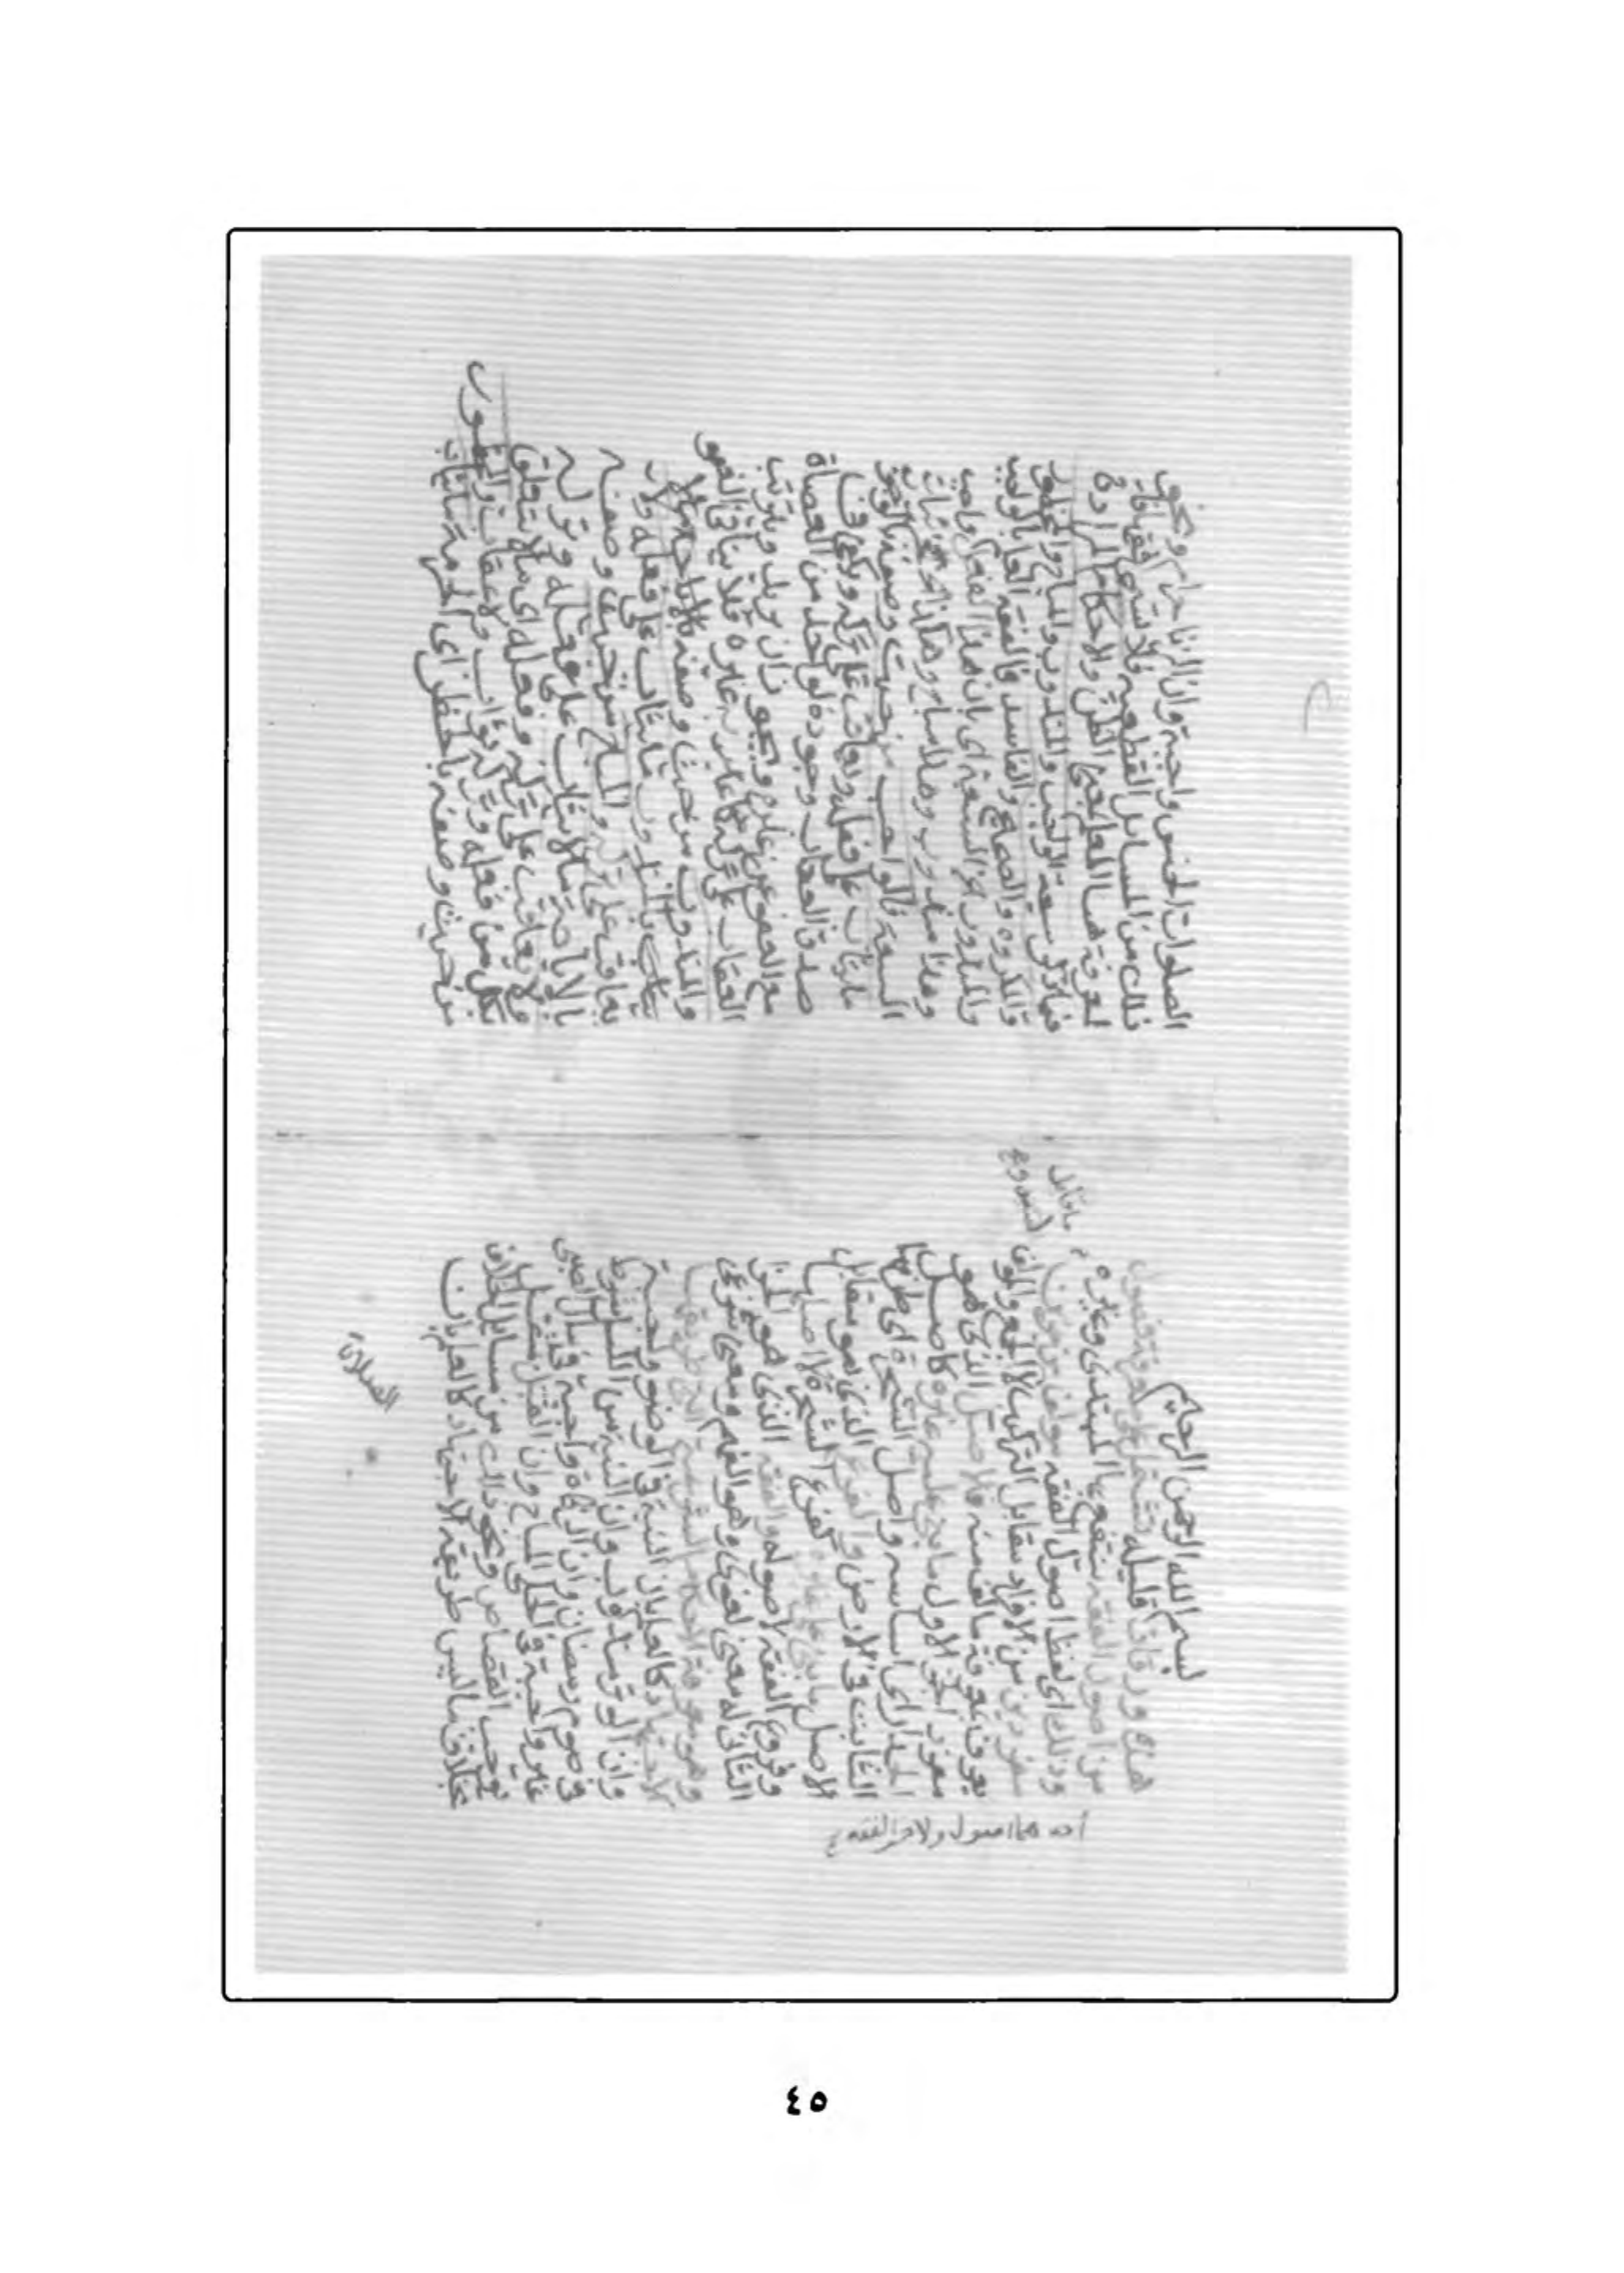 بسم الله الرحمن الرحيم
هذه ورقات قليله تشتمل على معرفة فصول
من اصول الفقه ينتفع بها المبتدى وغيره
وذلك اى لفظ اصول الفقه مولف من جزئين
مفردين من الافراد مقابل التركيب لا التثنية والجمع والمولف
يعرف بمعرفة ما الف منه فالاصل الذى هو
مفرد الجزء الاول ما بنى عليه غيره كاصل
الجدار اى اساسه واصل الشجرة اى طرفها
الثابت فى الارض والفرع الذى هو مقابل
الاصل ما يبنى على غيره كفروع الشجرة لاصلها
وفروع الفقه لاصوله والفقه الذى هو الجزء
الثانى له معنى لغوى وهو الفهم ومعنى شرعى
وهو معرفة الاحكام الشرعية التى طريقها
الاجتهاد كالعلم بان النية فى الوضوء واجبة
وان الوتر مندوب وان النية من الليل شرط
فى صوم رمضان وان الزكاة واجبة فى مال الصبى
غير واجبة فى الحلى المباح وان القتل بمثقل
يوجب القصاص ونحو ذلك من مسايل الخلاف
بخلاف ما ليس طريقه الاجتهاد كالعلم بان
الصلوات
الصلوات الخمس واجبة وان الزنا حرام ونحو
ذلك من المسايل القطعية فلا تسمى فقها
لمعرفة هنا العلم بمعنى الظن والاحكام المرادة
فيما ذكر سبعة الواجب والمندوب والمباح والمحظور
والمكروه والصحيح والفاسد فالفقه العلم بالواجب
والمندوب الى اخر السبعة اى بان هذا الفعل واجب
وهذا مندوب وهذا مباح وهكذا الى اخر
السبعة فالواجب من حيث وصفه بالوجوب
ما يثاب على فعله ويعاقب على تركه ويكفى فى
صدق العقاب وجوده لواحد من العصاة
مع العفو عن غيره ويجوز ان يريد ويترتب
العقاب على تركه كما عبر به غيره فلا ينافى العفو
والمندوب من حيث وصفه
ما يثاب على فعله ولا
يعاقب على تركه والمباح من حيث وصفه
بالاباحة ما لا يثاب على فعله وتركه
ولا يعاقب على تركه وفعله اى ما لا يتعلق
بكل من فعله وتركه ثواب ولا عقاب والمحظور
من حيث وصفه بالحظر اى الحرمة ما يثاب
٤٥